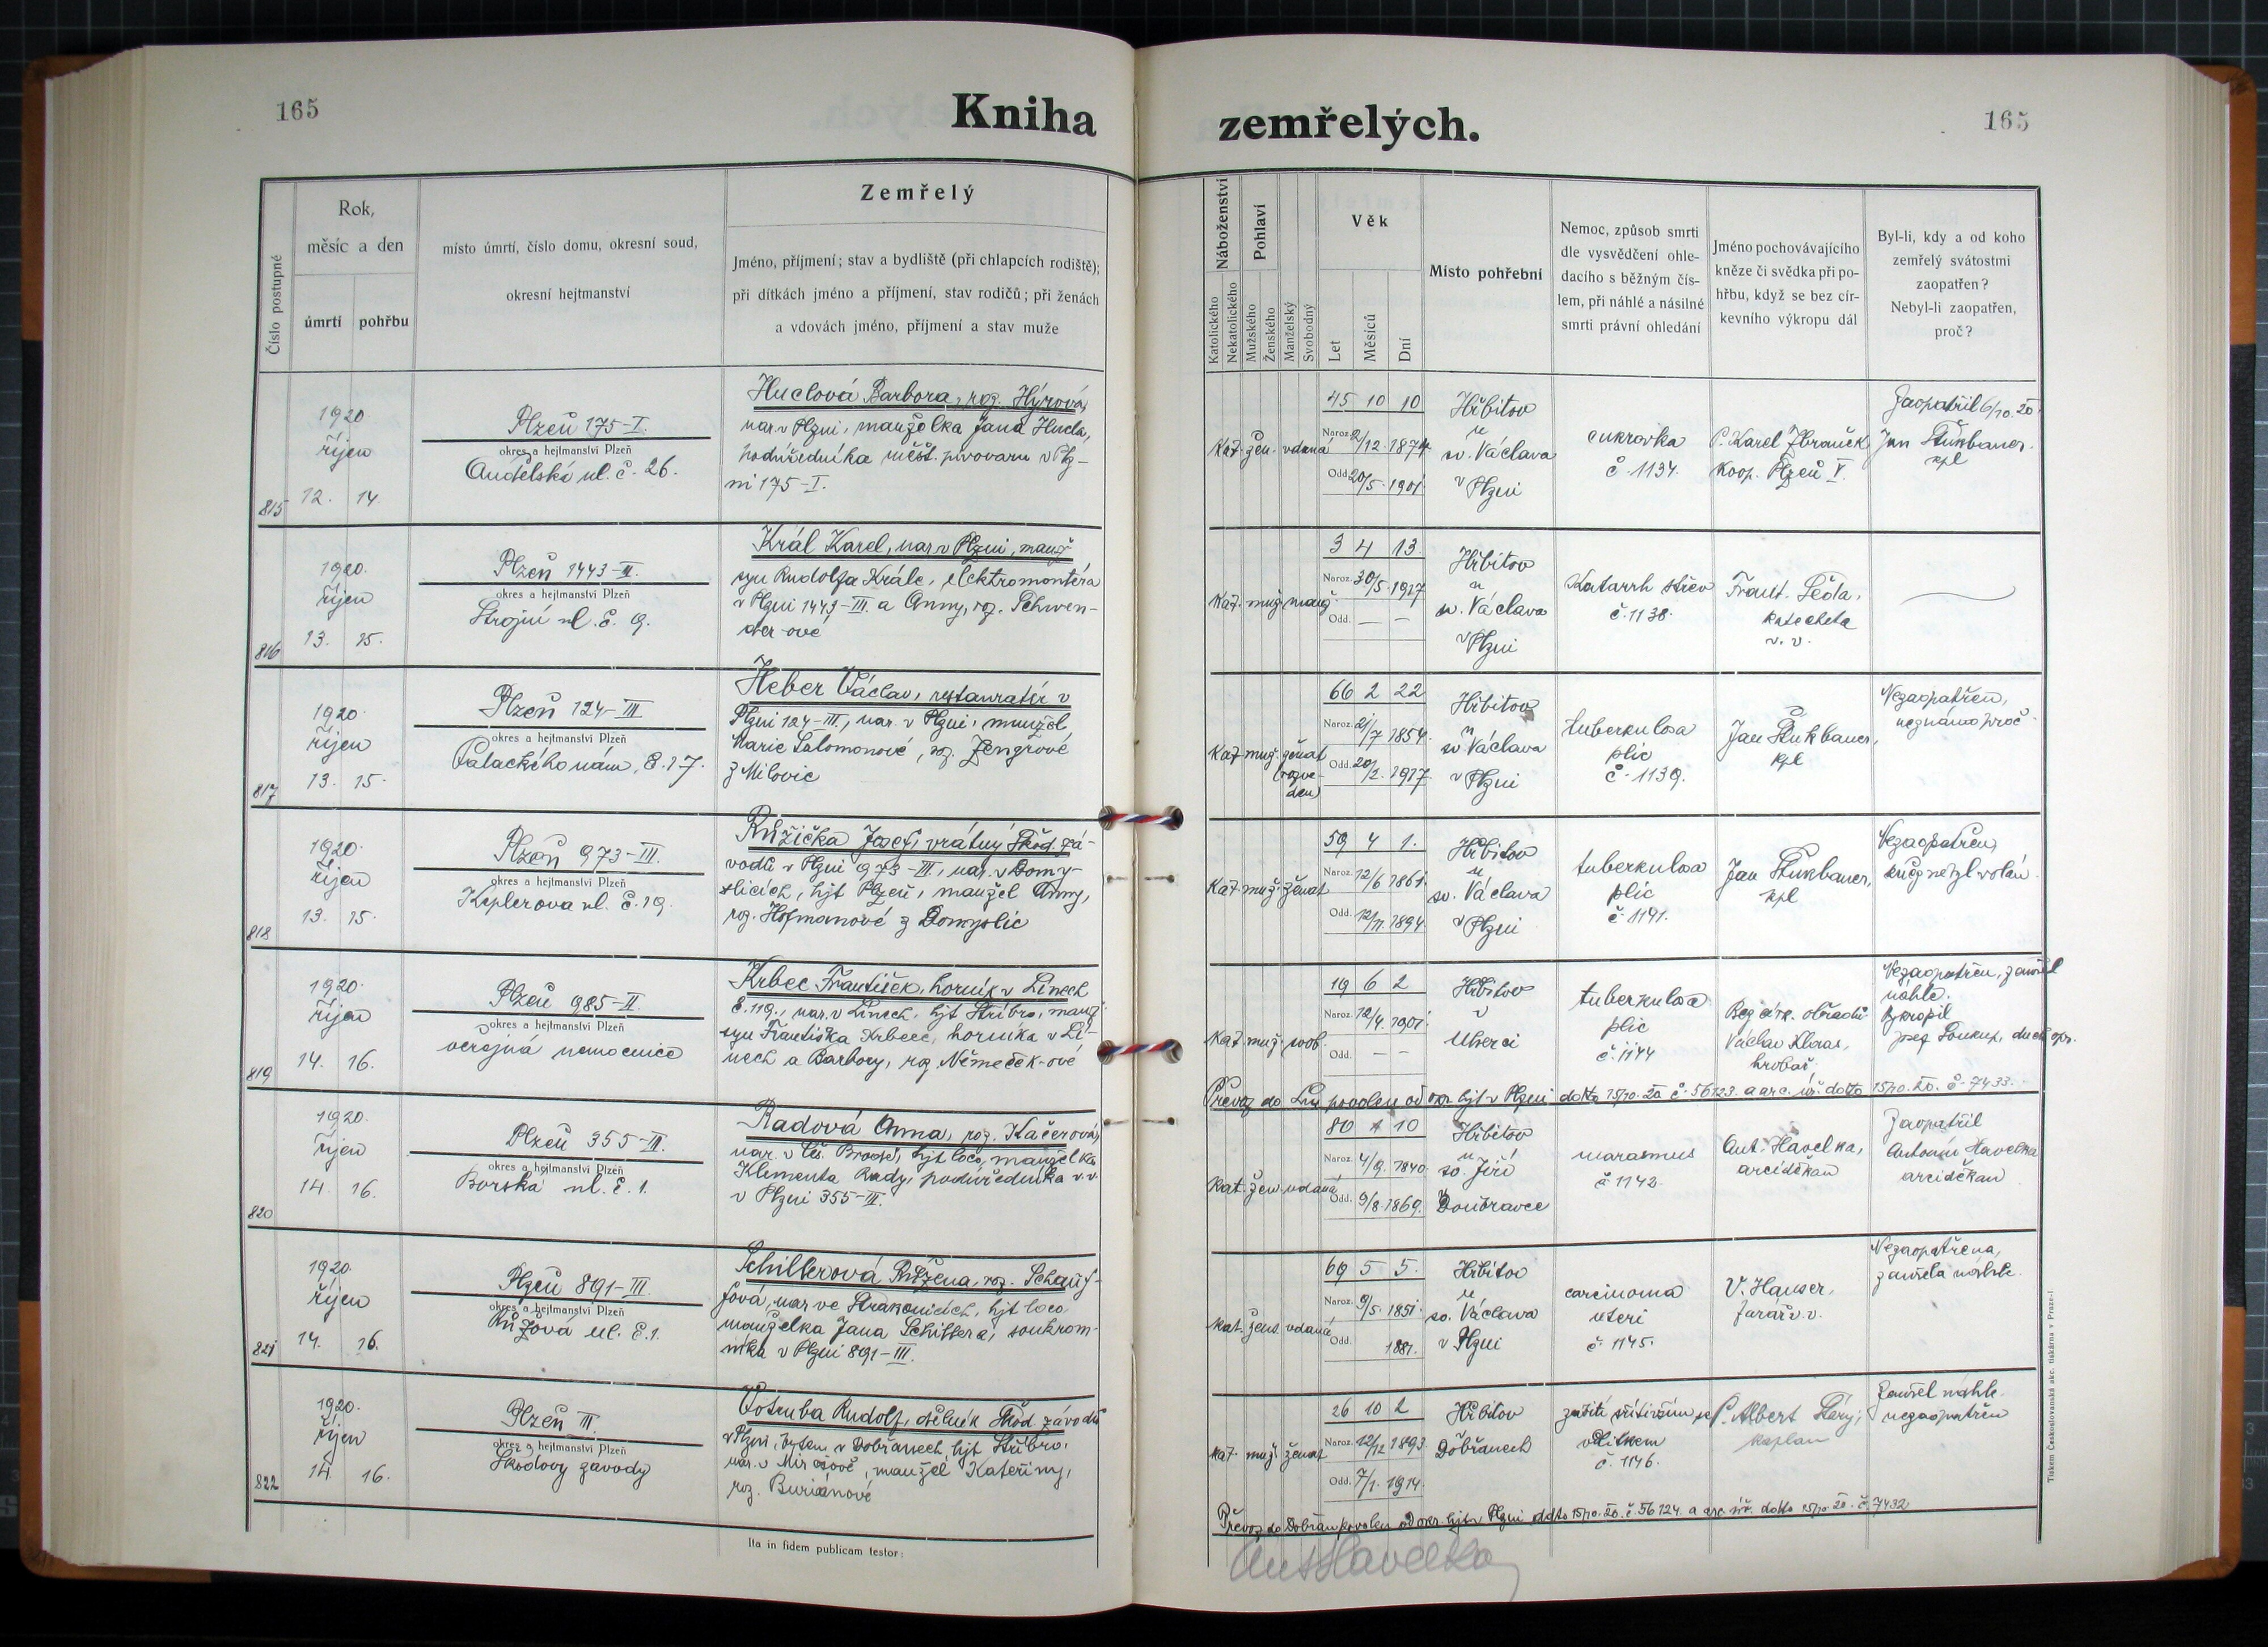 165
Kniha
zemřelých.
165
Číslo postupné
Rok,
měsíc a den
úmrtí
pohřbu
místo úmrtí, číslo domu, okresní soud,
okresní hejtmanství
Zemřelý
Jméno, příjmení; stav a bydliště (při chlapcích rodiště);
při dítkách jméno a příjmení, stav rodičů; při ženách
a vdovách jméno, příjmení a stav muže
Náboženství
Katolického
Nekatolického
Pohlaví
Mužského
Ženského
Manželský
Svobodný
Věk
Let
Měsíců
Dní
Místo pohřební
Nemoc, způsob smrti
dle vysvědčení ohle-
dacího s běžným čís-
lem, při náhlé a násilné
smrti právní ohledání
Jméno pochovávajícího
kněze či svědka při po-
hřbu, když se bez cír-
kevního výkropu dál
Byl-li, kdy a od koho
zemřelý svátostmi
zaopatřen?
Nebyl-li zaopatřen,
proč?
815
1920
říjen
12. 14.
Plzeň 175-I.
okres a hejtmanství Plzeň
Andělská ul. č. 26.
Huclová Barbora, roz. Hýrová,
nar. v Plzni, manželka Jana Hucla,
podúředníka měšť. pivovaru v Plz-
ni 175-I.
Kat. žen. vdaná
45 10 10
Naroz. 2/12. 1874.
Odd. 20/5. 1901.
Hřbitov
u
sv. Václava
v Plzni
cukrovka
č. 1134.
P. Karel
Koop. Plzeň V.
Zaopatřil 6/10. 20.
Jan Štukbauer
kpl
816
1920.
říjen
13. 15.
Plzeň 1443-III.
okres a hejtmanství Plzeň
Strojní ul. č. 9.
Král Karel, nar. v Plzni, manž.
syn Rudolfa Krále, elektromontéra
v Plzni 1443-III. a Anny, roz. Schwen-
der-ové
Kat. muž. manž.
3 4 13.
Naroz. 30/5. 1917
Odd. — —
Hřbitov
u
sv. Václava
v Plzni
Katarrh střev
č. 1138.
Frant.
katecheta
v. v.
817
1920.
říjen
13. 15.
Plzeň 124-III
okres a hejtmanství Plzeň
Palackého nám. č. 17.
Heber Václav, restauratér v
Plzni 124-III., nar. v Plzni, manžel
Marie Salomonové, roz. Zengrové
z Milovic
Kat. muž. ženat
(rozve-
den)
66 2 22
Naroz. 21/7 1854.
Odd. 20/2. 1917.
Hřbitov
u
sv Václava
v Plzni
tuberkulosa
plic
č. 1139.
Jan Štukbauer,
kpl
Nezaopatřen,
neznámo proč.
818
1920.
říjen
13. 15.
Plzeň 973-III.
okres a hejtmanství Plzeň
Keplerova ul. č. 19.
Růžička Josef, vrátný Škod. zá-
vodů v Plzni 973-III., nar. v Domy-
slicích, hjt Plzeň, manžel Anny,
roz. Hofmanové z Domyslic
Kat. muž. ženat
59 4 1.
Naroz. 12/6 1861.
Odd. 12/11. 1894.
Hřbitov
u
sv. Václava
v Plzni
tuberkulosa
plic
č. 1141.
Jan Štukbauer,
kpl
Nezaopatřen,
kněz nebyl volán.
819
1920.
říjen
14. 16.
Plzeň 985-II.
okres a hejtmanství Plzeň
veřejná nemocnice
Krbec František, horník v Línech
č. 119., nar. v Línech, hjt Stříbro, manž.
syn Františka Krbece, horníka v Lí-
nech a Barbory, roz Němeček-ové
Kat. muž. svob.
19 6 2
Naroz. 12/4. 1901.
Odd. — —
Hřbitov
v
Úherci
tuberkulosa
plic
č. 1144
Bez círk. obřadů
Václav Klaas,
hrobař
Nezaopatřen, zemřel
náhle.
Vykropil
Josef Soukup, duch. spr.
Převoz do Lín povolen od okr. hjt v Plzni ddto 15/10. 20 č. 56123. a arc. úř. ddto 15/10. 20. č. 7433.
820
1920.
říjen
14. 16.
Plzeň 355-III.
okres a hejtmanství Plzeň
Borská ul. č. 1.
Radová Anna, roz. Kačerová,
nar. v Čes. Brodě, hjt loco, manželka
Klementa Rady, podúředníka v. v.
v Plzni 355-III.
Kat. žen. vdaná
80 1 10
Naroz. 4/9. 1840.
Odd. 9/8. 1869.
Hřbitov
u
sv. Jiří
Doubravce
marasmus
č. 1142.
Ant. Havelka,
arciděkan
Zaopatřil
Antonín Havelka
arciděkan
821
1920.
říjen
14. 16.
Plzeň 891-III.
okres a hejtmanství Plzeň
Růžová ul. č. 1.
Schillerová Růžena, roz. Schauf-
fová, nar ve Strakonicích, hjt loco,
manželka Jana Schillera, soukrom-
níka v Plzni 891-III.
Kat. žens. vdaná
69 5 5.
Naroz. 9/5. 1851.
Odd. 1881.
Hřbitov
u
sv. Václava
v Plzni
carcinoma
uteri
č. 1145.
V. Hauser,
farář v. v.
Nezaopatřena,
zemřela náhle.
822
1920.
říjen
14. 16.
Plzeň III.
okres a hejtmanství Plzeň
Škodovy závody
Votruba Rudolf, dělník Škod. závodů
v Plzni, bytem v Dobřanech, hjt Stříbro,
nar. v Mirošově, manžel Kateřiny,
roz. Buriánové
Kat. muž. ženat
26 10 2
Naroz. 12/12 1893.
Odd. 7/1. 1914.
Hřbitov
Dobřanech
zabití
č. 1146.
P. Albert
kaplan
Zemřel náhle.
nezaopatřen
Převoz do Dobřan povolen od okr. hjt v Plzni ddto 15/10. 20. č. 56124. a arc. úř. ddto 15/10. 20. č. 7432
Ita in fidem publicam testor:
Ant Havelka
Tiskem Československá akc. tiskárna v Praze-I